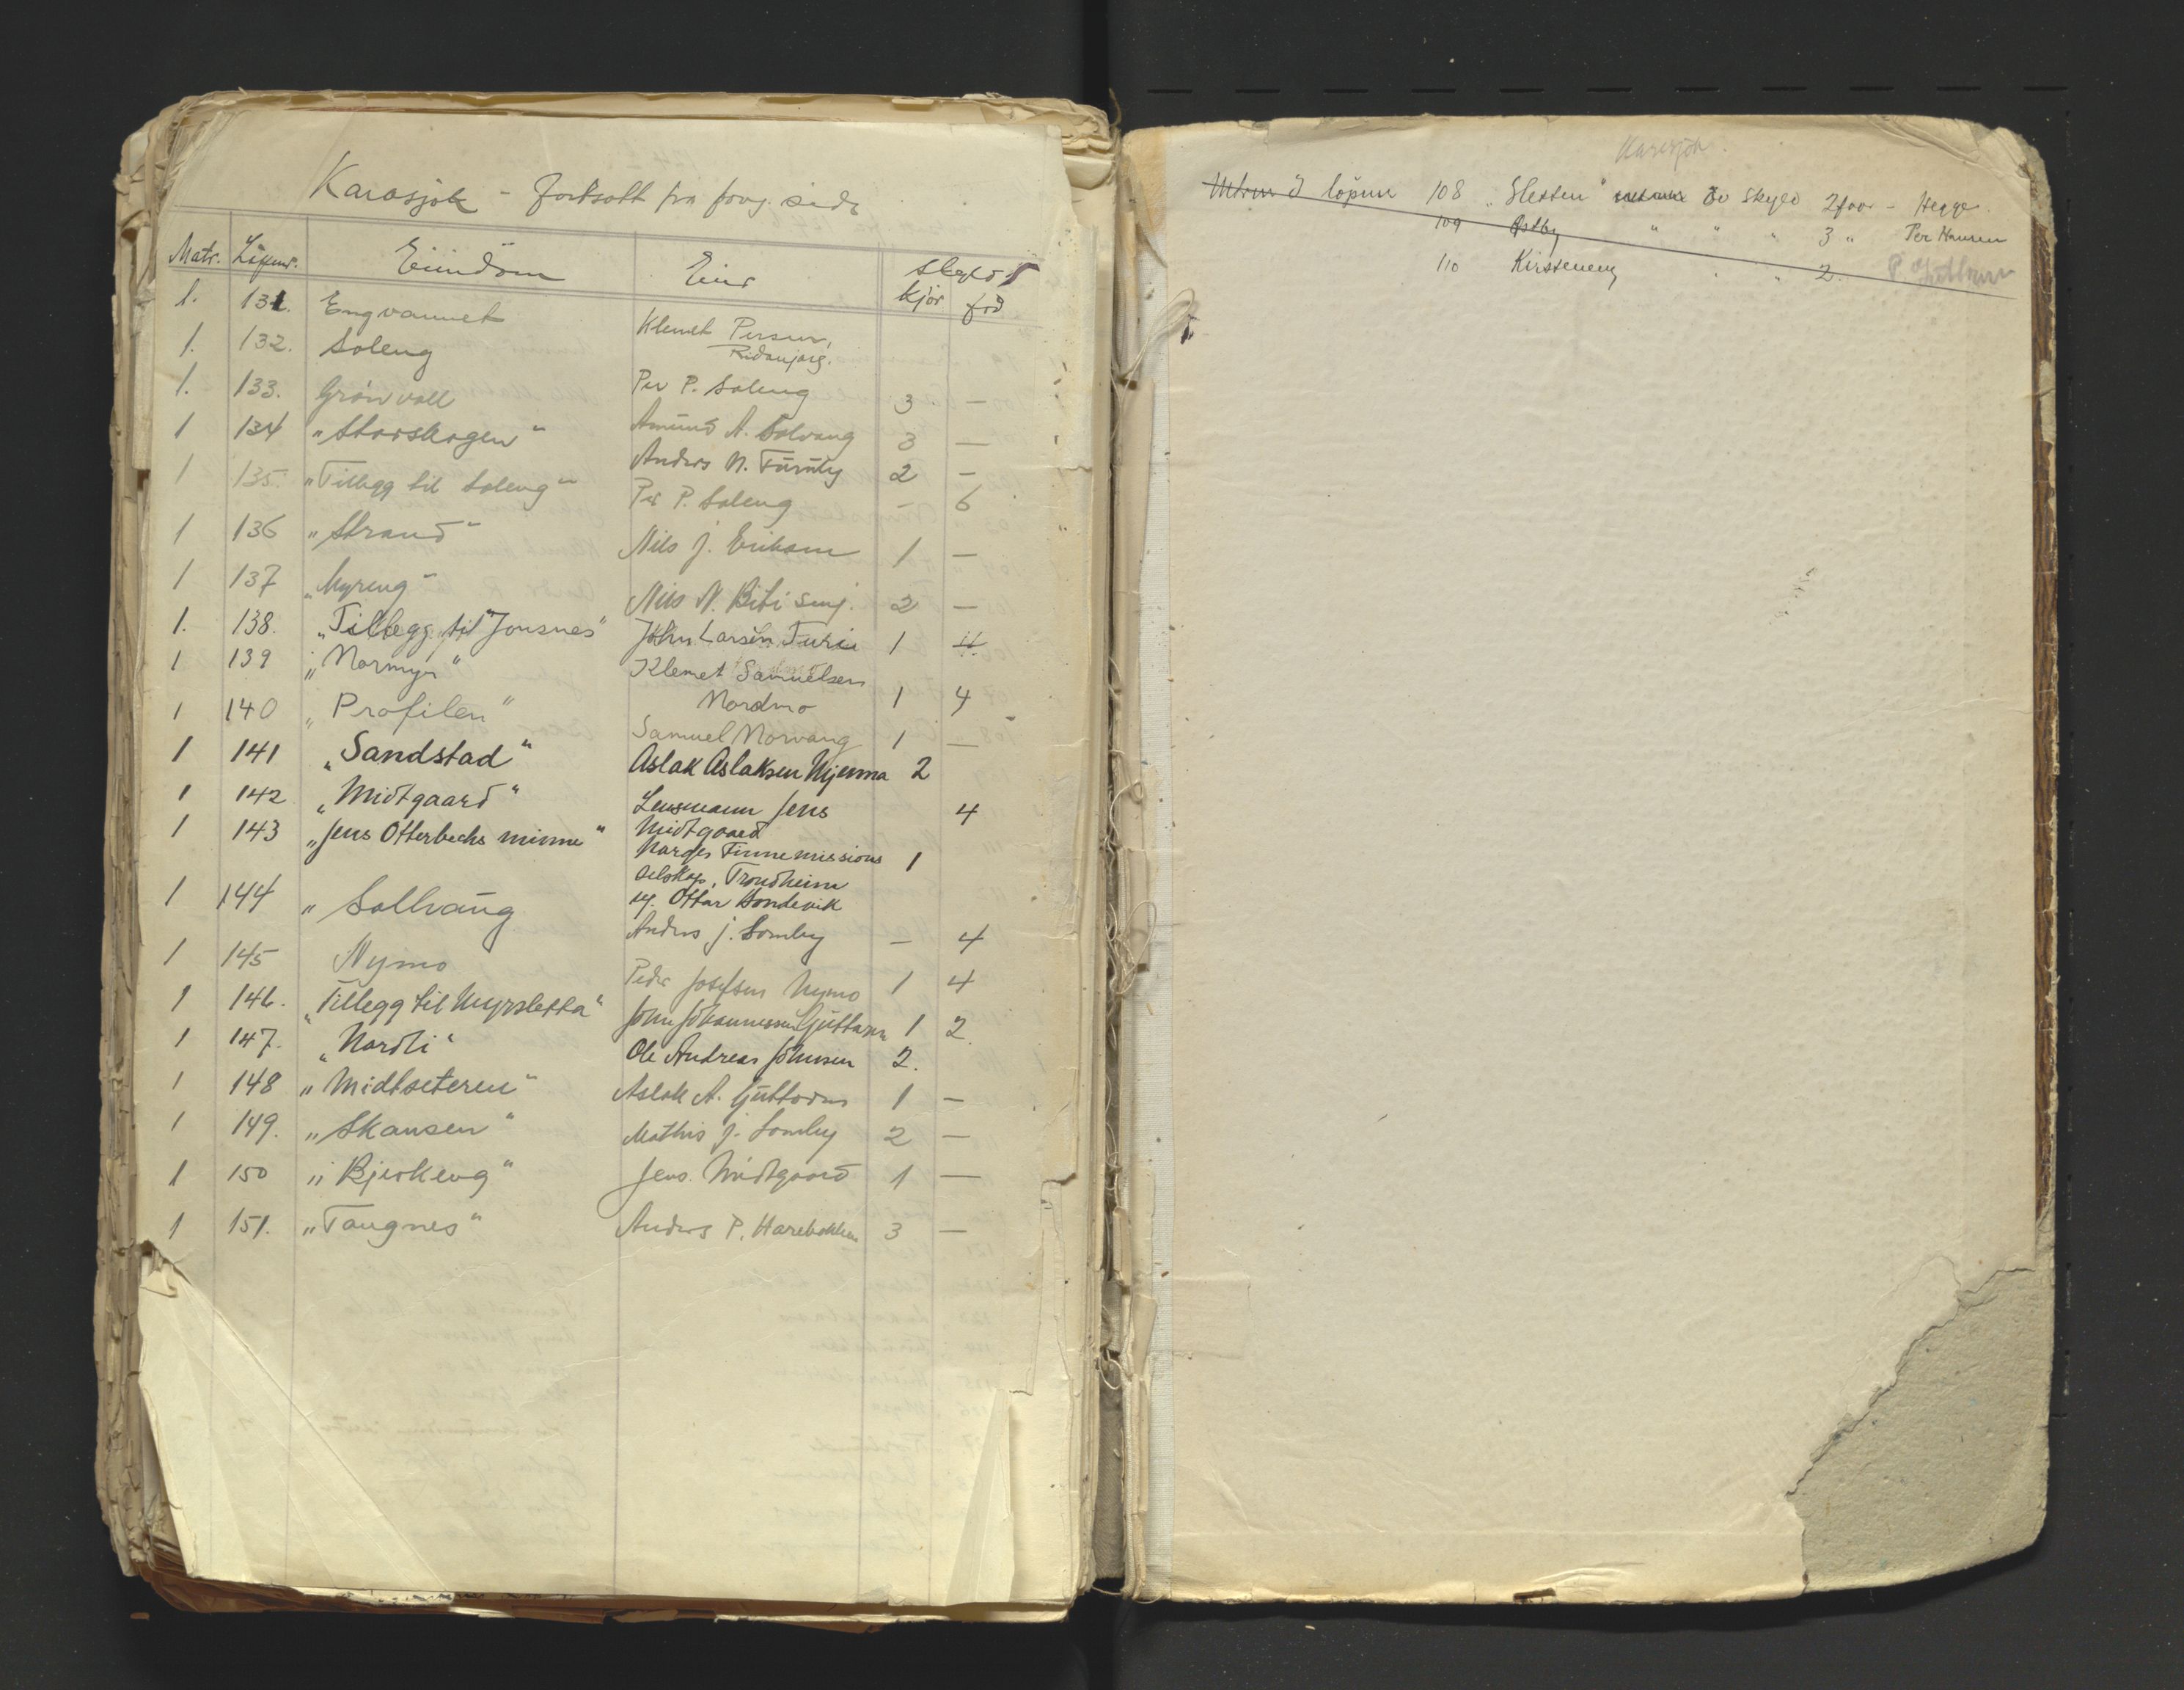 Karasjok - fortsatt fra forrg. side
Matr. Löpnr. Eiendom Eier skyld
kjör fòd
1. 131. Engvannet Klemet Persen,
Ridonjarg.
1. 132. Soleng Per P. Soleng 3 —
1. 133. Grönvoll Amund A. Solvang 3 —
1 134 "Storskogen" Anders N. Turi 2 —
1 135. "Tillegg til Soleng" Per P. Soleng - 6
1 136 "Strand" Nils J. Eriksen 1 —
1 137 "Myreng" Nils N. Biti 2 —
1. 138. "Tillegg til Jonsnes" John Larsen Turi 1
1 139 "Normyr" Klemet Samuelsen
Nordmo 1 4
1 140 "Profilen" Samuel Norvang 1 —
1 141 "Sandstad" Aslak Aslaksen Mjenna 2
1 142 "Midtgaard" Lensmann Jens 4
Midtgaard
1 143 "Jens Otterbechs minne" Norges Finnemissions 1
selskap, Trondheim
v/ Ottar Bondevik
1 144 " Sollvang Anders J. Somby — 4
1 145 Nymo Peder Josefsen Nymo 1 4
1 146. "Tillegg til Myrsletta" John Johannessen Guttorm 1 2
1 147. "Nordli" Ole Andreas Johnsen 2.
1 148 "Midtseteren" Aslak A. Guttorm 1 —
1 149. "Skansen" Mathis J. Somby 2 —
1 150 "Bjerkeng" Jens Midtgaard 1 —
1 151. "Tangnes" Anders P. 3 —
Karasjok
löpnr 108 "Sletten" av skyld 2 - Hegge
109 Østby " " " 3 " Per Hansen
110 Kirsteneng " " 2. P. Guttorm